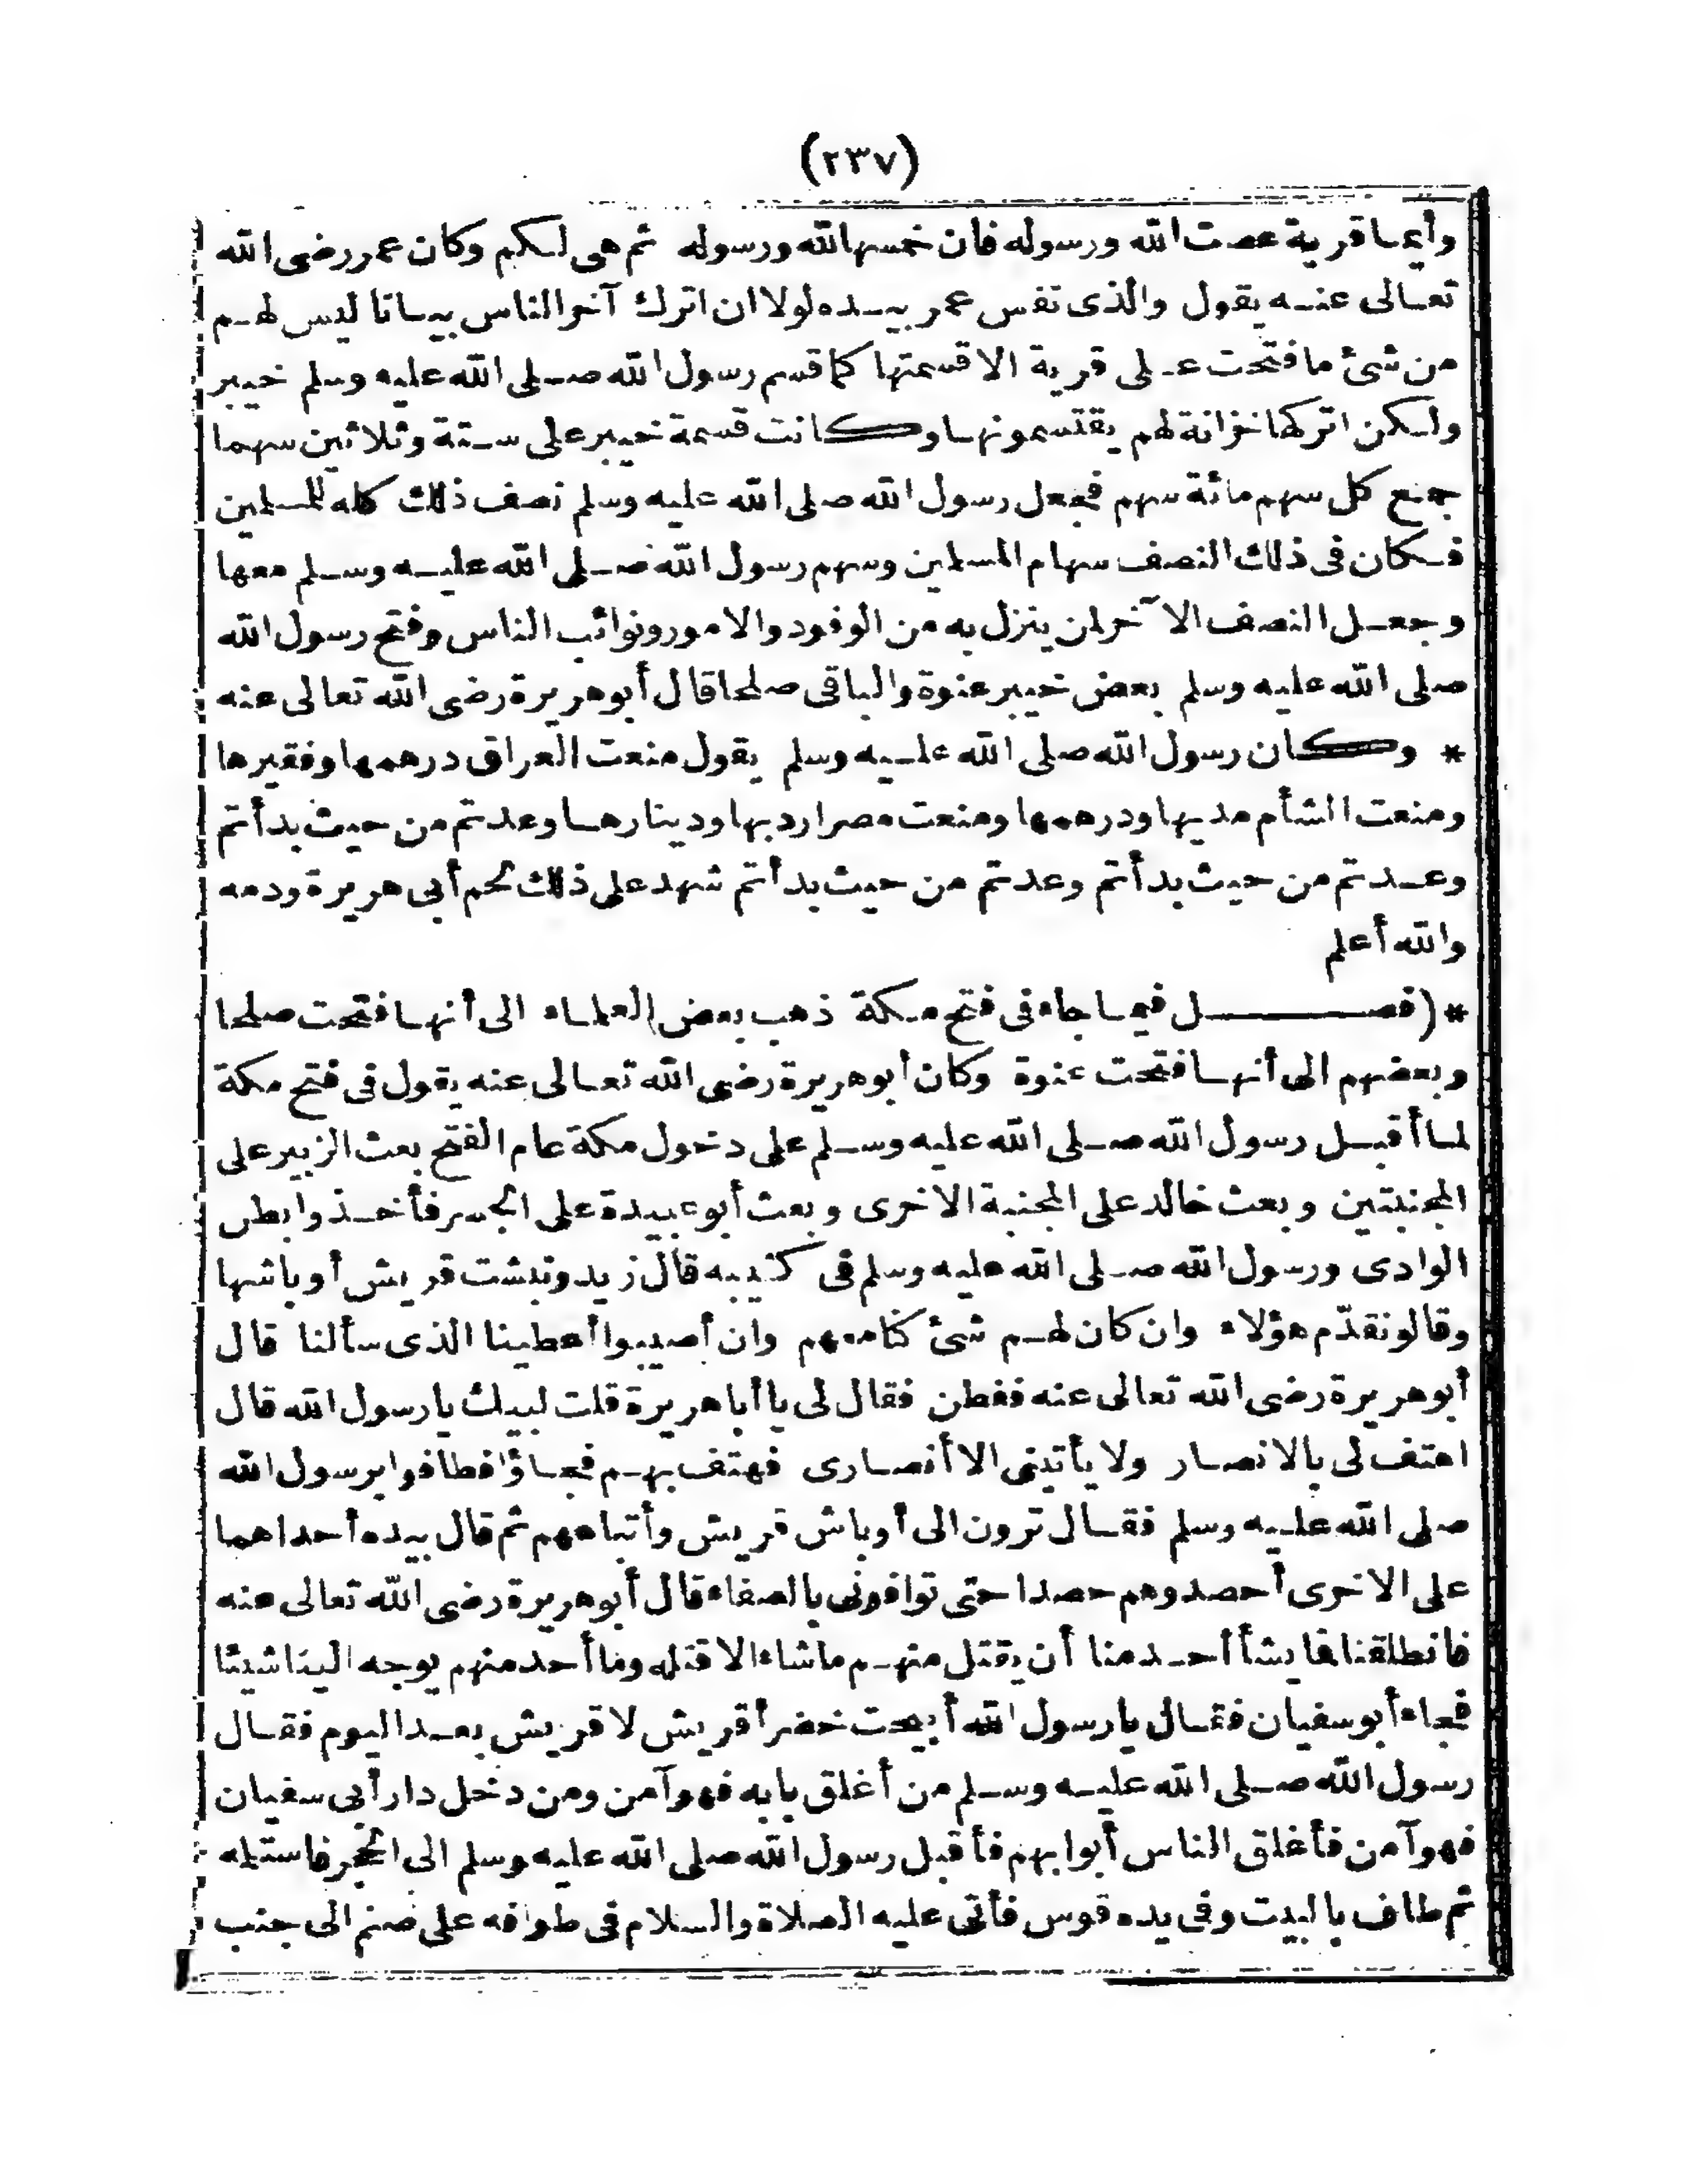 (٢٣٧)
وأيما قرية عصت الله ورسوله فان خمسها لله ورسوله ثم هى لكم وكان عمر رضى الله
تعالى عنه يقول والذى نفس عمر بيده لولا ان اترك آخر الناس ببانا ليس لهم
من شئ ما فتحت على قرية الا قسمتها كما قسم رسول الله صلى الله عليه وسلم خيبر
ولكن اتركها خزانة لهم يقتسمونها وكانت قسمة خيبر على ستة وثلاثين سهما
جمع كل سهم مائة سهم فجعل رسول الله صلى الله عليه وسلم نصف ذلك كله للمسلمين
فكان فى ذلك النصف سهام المسلمين وسهم رسول الله صلى الله عليه وسلم معها
وجعل النصف الآخر لمن ينزل به من الوفود والامور ونوائب الناس وفتح رسول الله
صلى الله عليه وسلم بعض خيبر عنوة والباقى صلحا قال أبو هريرة رضى الله تعالى عنه
* وكان رسول الله صلى الله عليه وسلم يقول منعت العراق درهمها وفقيرها
ومنعت الشأم مديها ودرهمها ومنعت مصر اردبها ودينارها وعدتم من حيث بدأتم
وعدتم من حيث بدأتم وعدتم من حيث بدأتم شهد على ذلك لحم أبى هريرة ودمه
والله أعلم
* (فصل فيما جاء فى فتح مكة ذهب بعض العلماء الى أنها فتحت صلحا
وبعضهم الى أنها فتحت عنوة وكان أبو هريرة رضى الله تعالى عنه يقول فى فتح مكة
لما أقبل رسول الله صلى الله عليه وسلم على دخول مكة عام الفتح بعث الزبير على
المجنبتين وبعث خالد على المجنبة الاخرى وبعث أبو عبيدة على الجسر فأخذوا بطن
الوادى ورسول الله صلى الله عليه وسلم فى كتيبه قال زيد وتبشت قريش أوباشها
وقالو نقدّم هؤلاء وان كان لهم شئ كنا معهم وان أصيبوا أعطينا الذى سألنا قال
أبو هريرة رضى الله تعالى عنه ففطن فقال لى يا أبا هريرة قلت لبيك يا رسول الله قال
اهتف لى بالانصار ولا يأتينى الا أنصارى فهتف بهم فجاؤا فطافوا برسول الله
صلى الله عليه وسلم فقال ترون الى أوباش قريش وأتباعهم ثم قال بيده أحداهما
على الاخرى أحصدوهم حصدا حتى توافونى بالصفاء قال أبو هريرة رضى الله تعالى عنه
فانطلقنا فما يشأ أحد منا أن يقتل منهم ماشاء الا قتله وما أحد منهم يوجه الينا شيئا
فجاء أبو سفيان فقال يا رسول الله أبيحت خضرأ قريش لا قريش بعد اليوم فقال
رسول الله صلى الله عليه وسلم من أغلق بابه فهو آمن ومن دخل دار أبى سفيان
فهو آمن فأغلق الناس أبوابهم فأقبل رسول الله صلى الله عليه وسلم الى الحجر فاستلمه
ثم طاف بالبيت وفى يده قوس فأتى عليه الصلاة والسلام فى طوافه على صنم الى جنب